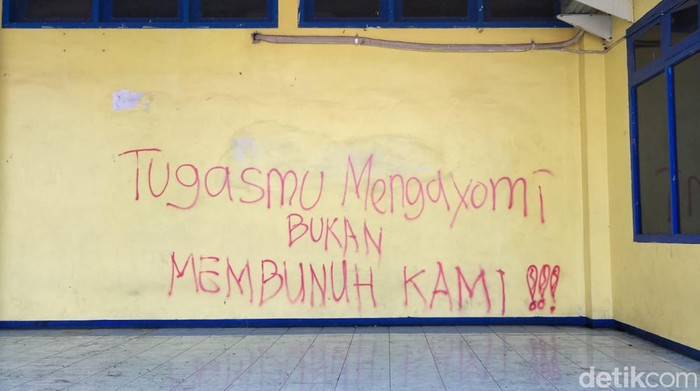 Tugasmu Mengayomi
BUKAN
MEMBUNUH KAMI !!!
detikcom